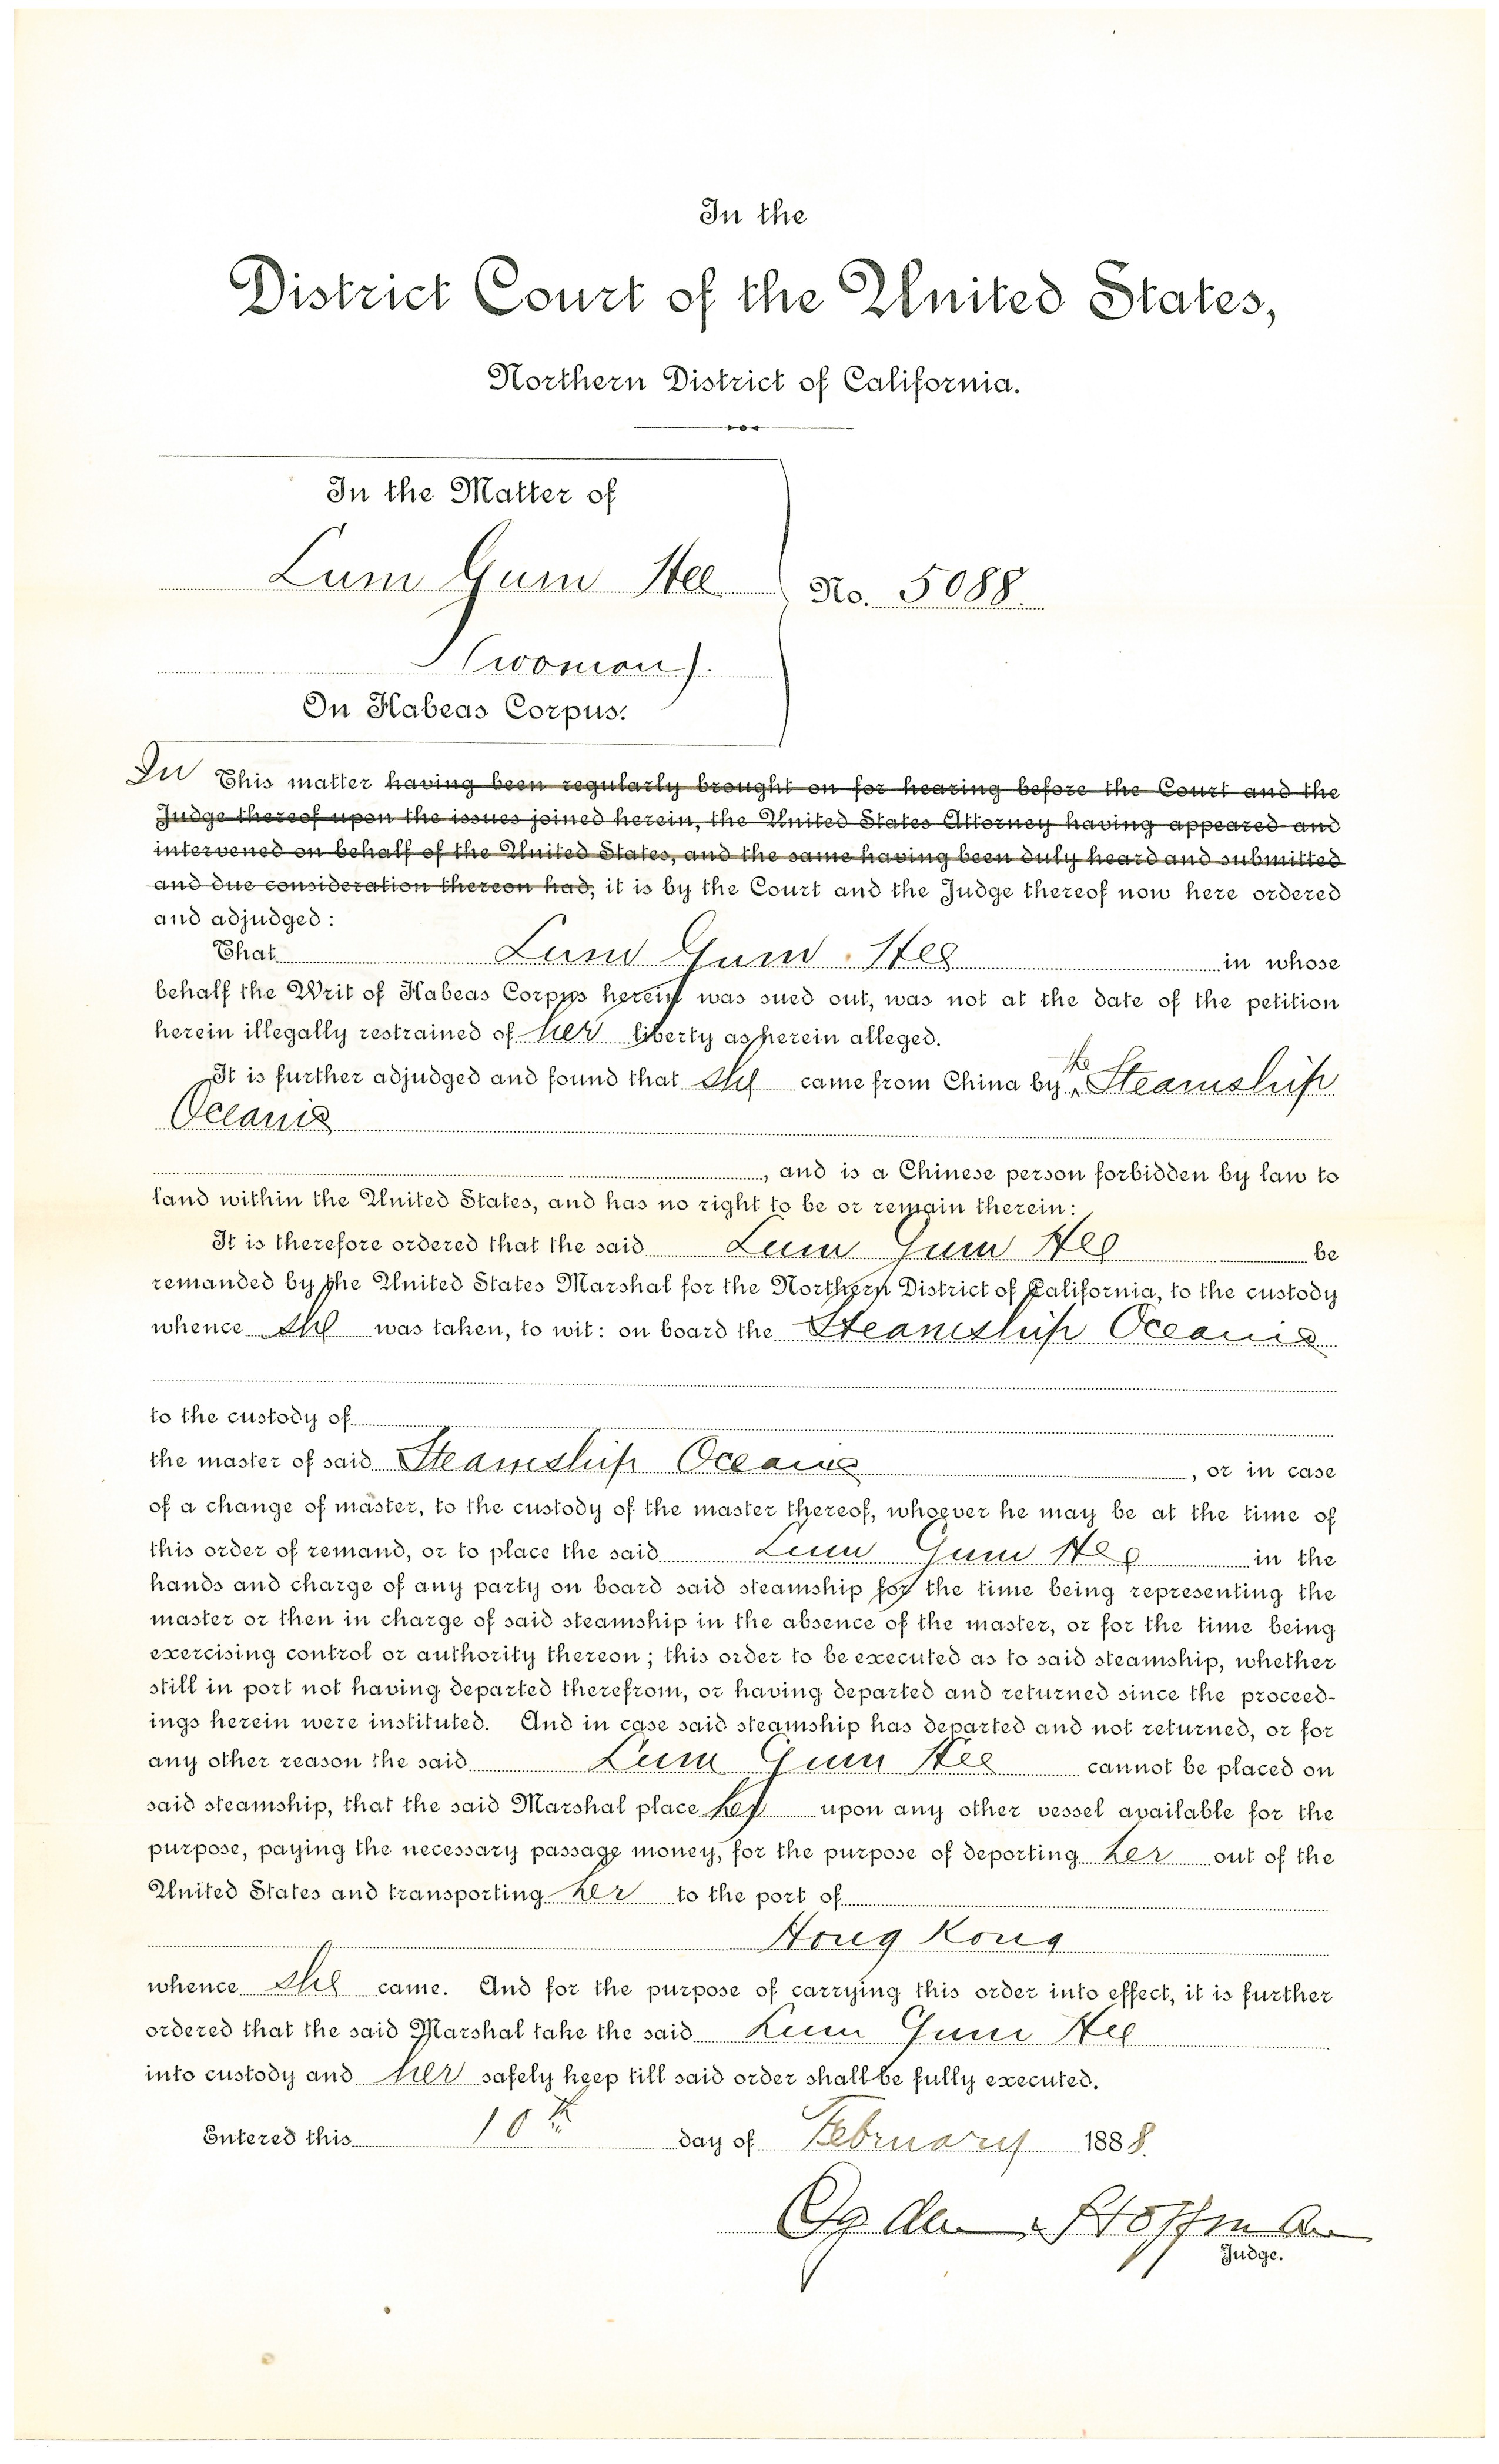 In the
District Court of the United States,
Northern District of California.
In the Matter of
Lum Gum Hee
No. 5088.
(woman).
On Habeas Corpus.
In This matter having been regularly brought on for hearing before the Court and the
Judge thereof upon the issues joined herein, the United States Attorney having appeared and
intervened on behalf of the United States, and the same having been duly heard and submitted
and due consideration thereon had, it is by the Court and the Judge thereof now here ordered
and adjudged:
That Lum Gum Hee in whose
behalf the Writ of Habeas Corpus herein was sued out, was not at the date of the petition
herein illegally restrained of her liberty as herein alleged.
It is further adjudged and found that she came from China by the Steamship
Oceanic
, and is a Chinese person forbidden by law to
land within the United States, and has no right to be or remain therein:
It is therefore ordered that the said Lum Gum Hee be
remanded by the United States Marshal for the Northern District of California, to the custody
whence she was taken, to wit: on board the Steamship Oceanic
to the custody of
the master of said Steamship Oceanic, or in case
of a change of master, to the custody of the master thereof, whoever he may be at the time of
this order of remand, or to place the said Lum Gum Hee in the
hands and charge of any party on board said steamship for the time being representing the
master or then in charge of said steamship in the absence of the master, or for the time being
exercising control or authority thereon; this order to be executed as to said steamship, whether
still in port not having departed therefrom, or having departed and returned since the proceed-
ings herein were instituted. And in case said steamship has departed and not returned, or for
any other reason the said Lum Gum Hee cannot be placed on
said steamship, that the said Marshal place her upon any other vessel available for the
purpose, paying the necessary passage money, for the purpose of deporting her out of the
United States and transporting her to the port of
Hong Kong
whence she came. And for the purpose of carrying this order into effect, it is further
ordered that the said Marshal take the said Lum Gum Hee
into custody and her safely keep till said order shall be fully executed.
Entered this 10th day of February 1888.
Ogden Hoffman
Judge.